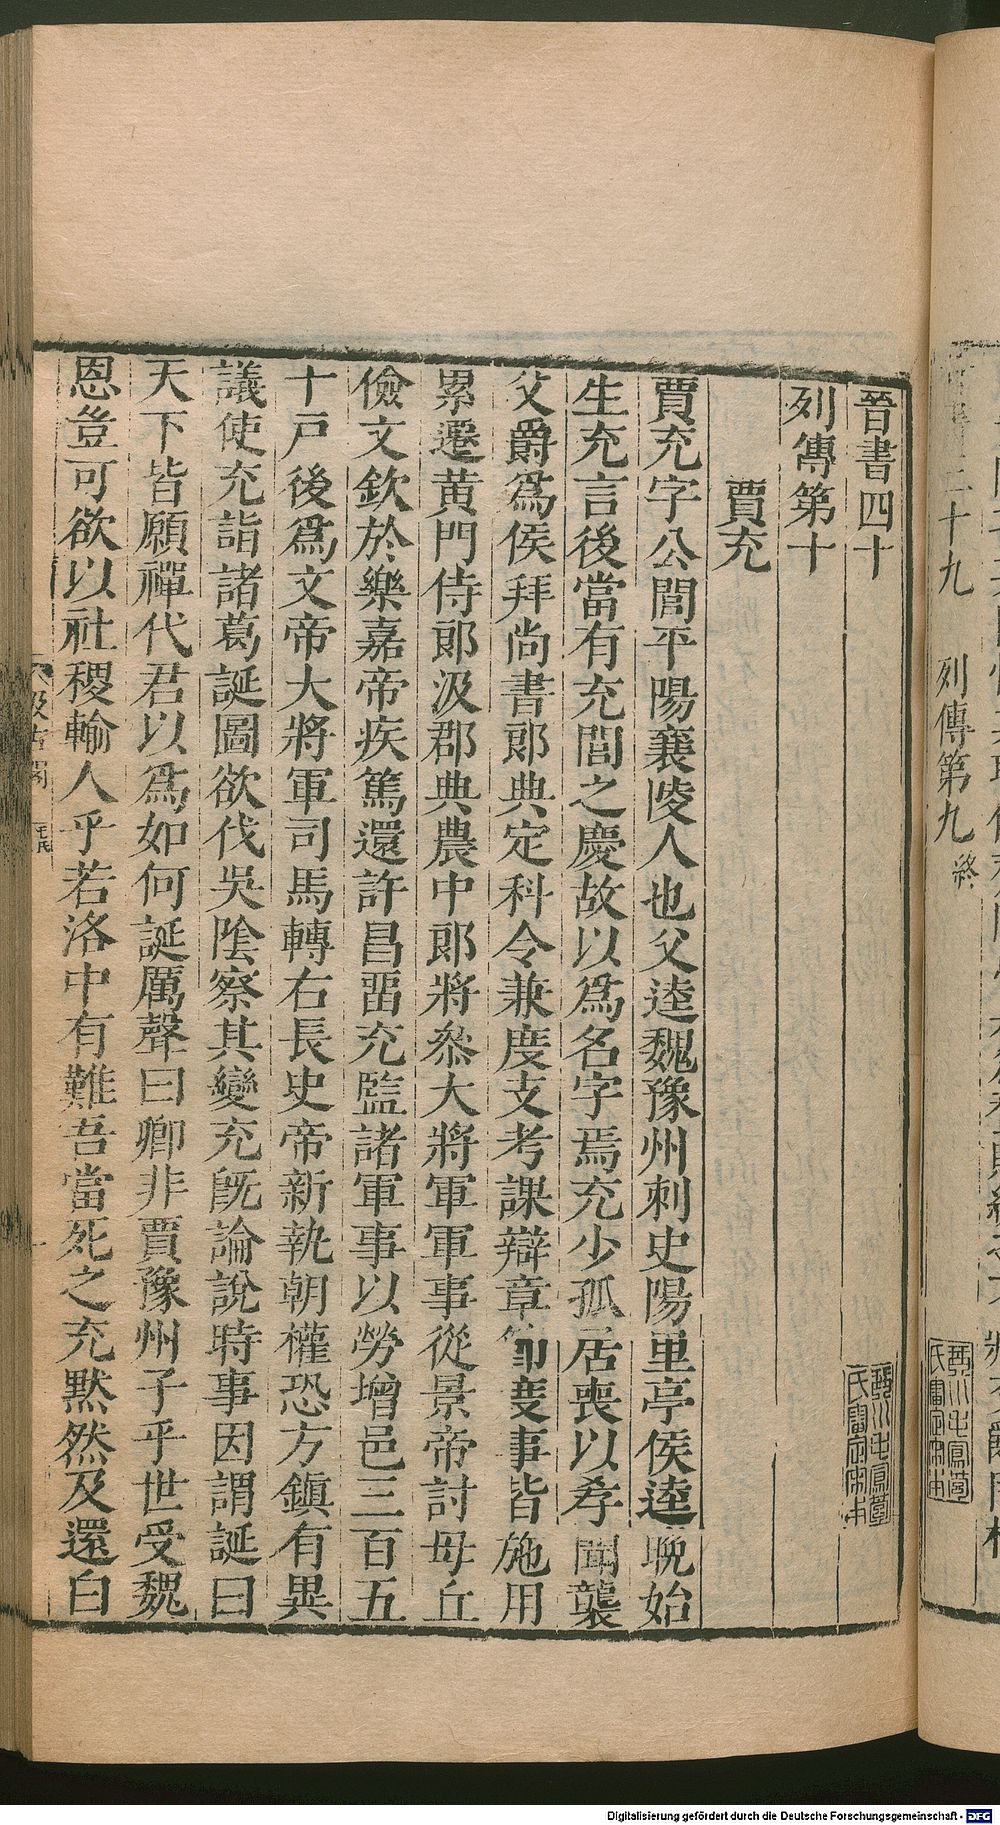 二十九
列傳第九
終
晉書四十
列傳第十
賈充
賈充字公閭平陽襄陵人也父逵魏豫州刺史陽里亭侯逵晚始
生充言後當有充閭之慶故以爲名字焉充少孤居喪以孝聞襲
父爵爲侯拜尚書郎典定科令兼度支考課辯章節度事皆施用
累遷黃門侍郎汲郡典農中郎將叅大將軍軍事從景帝討毋丘
儉文欽於樂嘉帝疾篤還許昌畱充監諸軍事以勞增邑三百五
十戸後爲文帝大將軍司馬轉右長史帝新執朝權恐方鎮有異
議使充詣諸葛誕圖欲伐吳陰察其變充旣論說時事因謂誕曰
天下皆願禪代君以爲如何誕厲聲曰卿非賈豫州子乎世受魏
恩豈可欲以社稷輸人乎若洛中有難吾當死之充默然及還白
Digitalisierung gefördert durch die Deutsche Forschungsgemeinschaft - DFG